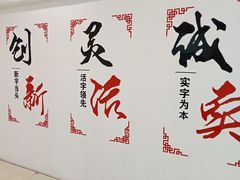 创新
新字当头
灵活
活字领先
诚实
实字为本